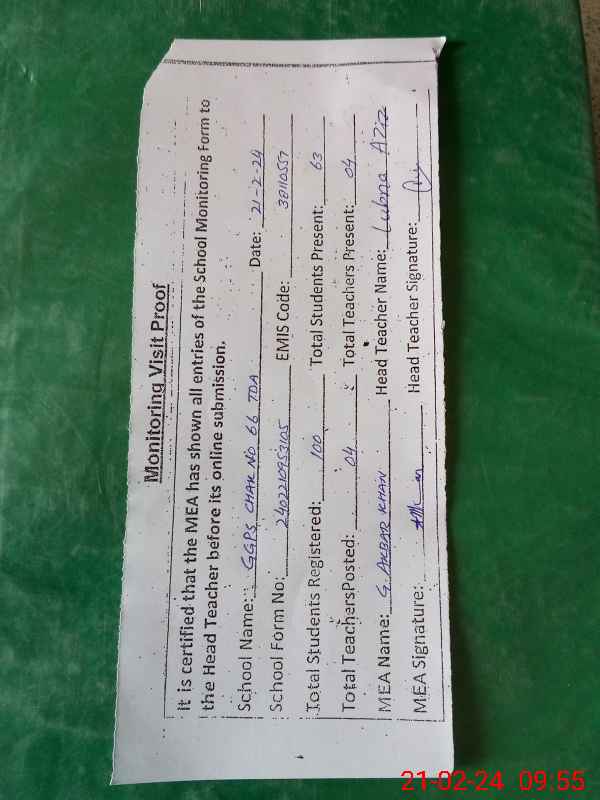 Monitoring Visit Proof
It is certified that the MEA has shown all entries of the School Monitoring Form to
the Head Teacher before its online submission.
School Name: GGPS CHAK NO 66 TDA Date: 21-2-24
School Form No: 2402210953105 EMIS Code: 38110557
Total Students Registered: 100 Total Students Present: 63
Total TeachersPosted: 04 Total Teachers Present: 04
MEA Name: G. AKBAR KHAN Head Teacher Name: Lubna AZiz
MEA Signature: Head Teacher Signature:
21-02-24 09:55